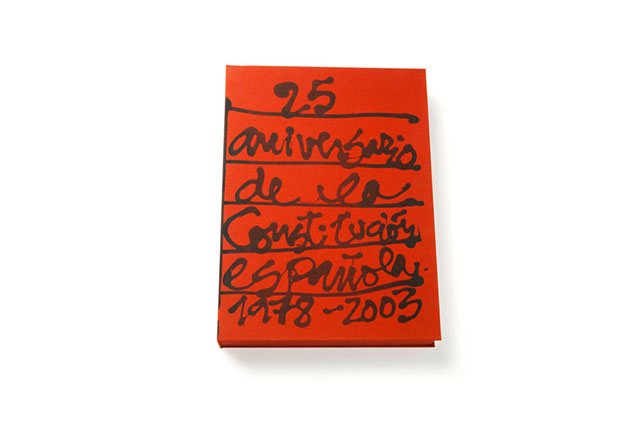 25
aniversario
de la
Constitución
española.
1978-2003